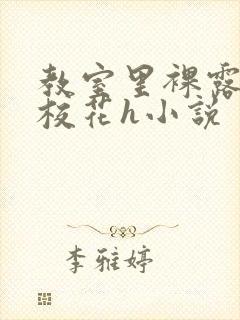 教室里裸露
校花h小说
李雅婷